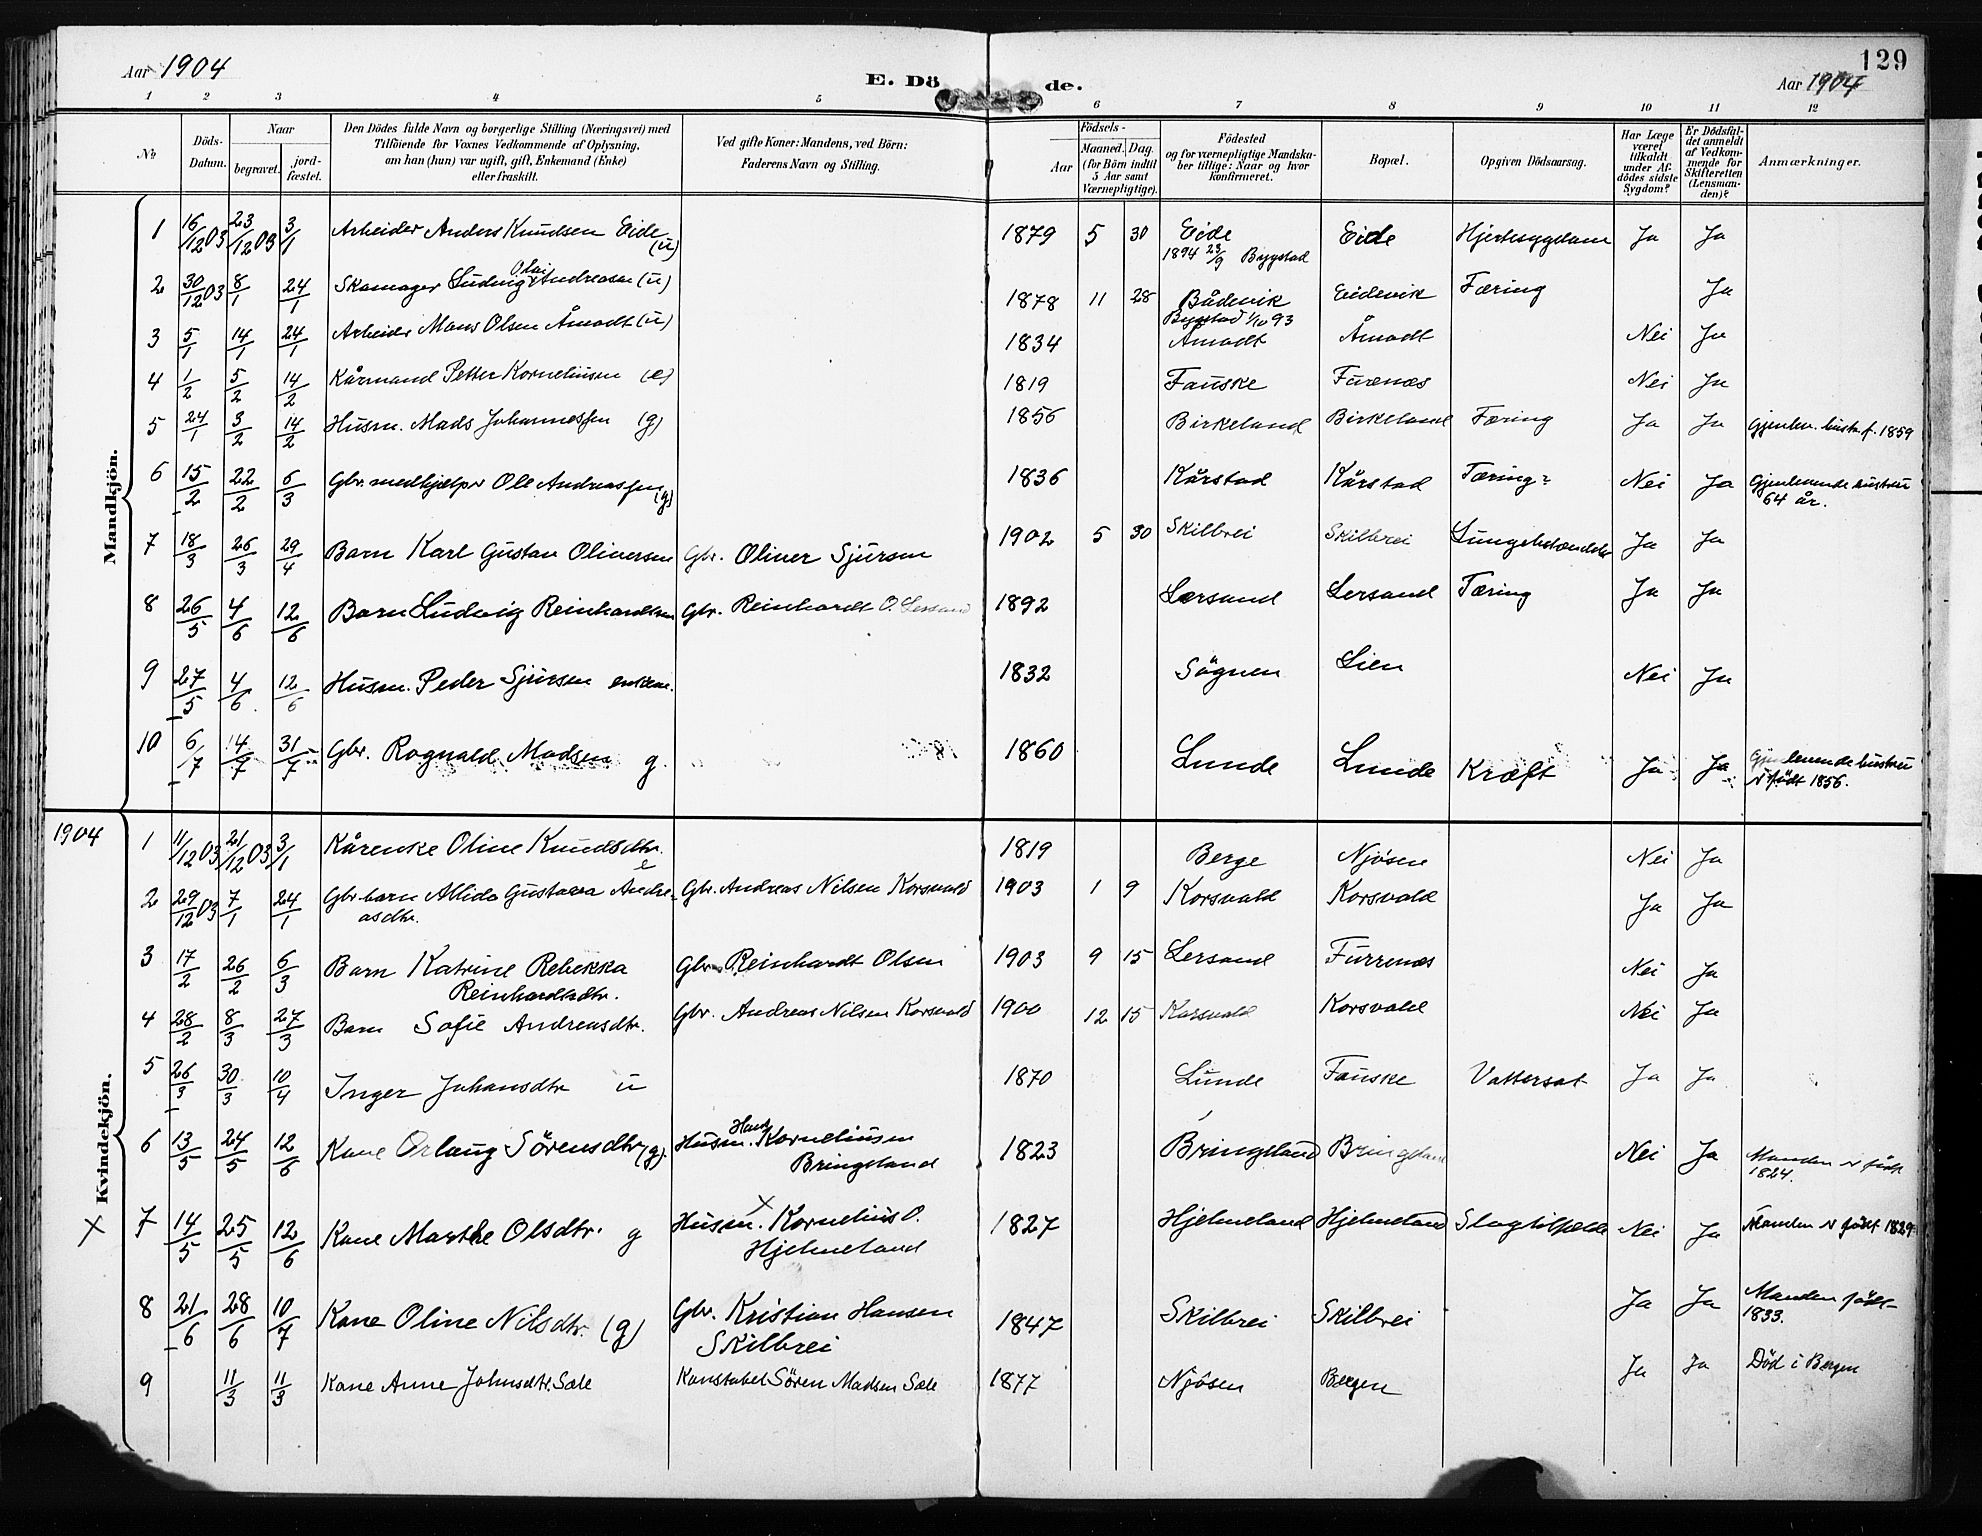 129
Aar 1904 E. Döde. Aar 1904
1 2 3 4 5 6 7 8 9 10 11 12
№ Döds-Datum. Naar begravet. jord-fæstet. Den Dödes fulde Navn og borgerlige Stilling (Næringsvei) med Tilföiende for Voxnes Vedkommende af Oplysning, om han (hun) var ugift, gift, Enkemand (Enke) eller fraskilt. Ved gifte Koner: Mandens, ved Börn: Faderens Navn og Stilling. Födsels- Aar Maaned. Dag. (for Börn indtil 5 Aar samt Værnepligtige). Födested og for værnepligtige Mandskaber tillige: Naar og hvor konfirmeret. Bopæl. Opgiven Dödsaarsag. Har Læge været tilkaldt under Afdödes sidste Sygdom? Er Dödsfaldet anmeldt af Vedkommende for Skifteretten (Lensmanden)? Anmærkninger.
Mandkjön.
1 16/12 03 23/12 03 3/1 Arbeider Anders Knudsen Eide (u) 1879 5 30 Eide 1894 23/9 Bygstad Eide Hjertesygdom Ja Ja
2 30/12 03 8/1 24/1 Skomager Ludvig Olai Andreasen (u) 1878 11 28 Bådevik Bygstad 1/10 93 Eidevik Tæring Ja
3 5/1 14/1 24/1 Arbeider Mons Olsen Åmodt (u) 1834 Åmodt Åmodt Nei Ja
4 1/2 5/2 14/2 Kårmand Petter Korneliusen (e) 1819 Fauske Furenæs Nei Ja
5 24/1 3/2 14/2 Husm. Mads Johannessen (g) 1856 Birkeland Birkeland Tæring Ja Ja Gjenlev. hustr. f. 1859
6 15/2 22/2 6/3 Gbr. medhjælper Ole Andreassen (g) 1836 Kårstad Kårstad Tæring? Nei Ja Gjenlevende hustru 64 år.
7 18/3 26/3 29/4 Barn Karl Gustav Oliversen Gbr. Oliver Sjursen 1902 5 30 Skilbrei Skilbrei Lungebetændelse Ja Ja
8 26/5 4/6 12/6 Barn Ludvig Reinhardtsen Gbr. Reinhardt O. Lersand 1892 Lersand Lersand Tæring Ja Ja
9 27/5 4/6 12/6 Husm. Peder Sjursen enkem. 1832 Sögnen Lien Nei Ja
10 6/7 14/7 31/7 Gbr. Rognald Madsen g. 1860 Lunde Lunde Kræft Ja Ja Gjenlevende hustru er født 1856.
1904
Kvindekjön.
1 11/12 03 21/12 03 3/1 Kårenke Oline Knudsdtr. e 1819 Berge Njøsen Nei Ja
2 29/12 03 7/1 24/1 Gbr barn Allida Gustava Andreasdtr. Gbr. Andreas Nilsen Korsvold 1903 1 9 Korsvold Korsvold Ja Ja
3 17/2 26/2 6/3 Barn Katrine Rebekka Reinhardtsdtr. Gbr. Reinhardt Olsen 1903 9 15 Lersand Furrenæs Nei Ja
4 28/2 8/3 27/3 Barn Sofie Andreasdtr. Gbr. Andreas Nilsen Korsvold 1900 12 15 Korsvold Korsvold Nei Ja
5 26/3 30/3 10/4 Inger Johansdtr u 1870 Lunde Fauske Vattersot Ja Ja
6 13/5 24/5 12/6 Kone Orlaug Sörensdtr (g). Husm. Hans Korneliusen Bringeland 1823 Bringeland Bringeland Nei Ja Manden er født 1824.
X 7 14/5 25/5 12/6 Kone Marthe Olsdtr. g Husm. X Kornelius O. Hjelmeland 1827 Hjelmeland Hjelmeland Slagtilfælde Nei Ja Manden er født 1829
8 21/6 28/6 10/7 Kone Oline Nilsdtr. (g) Gbr. Kristian Hansen Skilbrei 1847 Skilbrei Skilbrei Ja Ja Manden født 1833.
9 11/3 11/3 Kone Anne Johnsdtr. Sæle Konstabel Sören Madsen Sæle 1877 Njøsen Bergen Ja Ja Död i Bergen